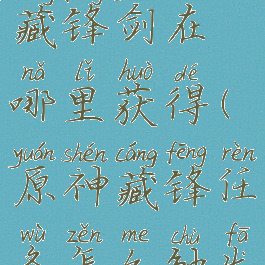 藏锋剑在
nǎ lǐ huò dé
哪里获得(
yuán shén cáng fēng rèn
原神藏锋任
wù zěn me chù fā
务怎么触发